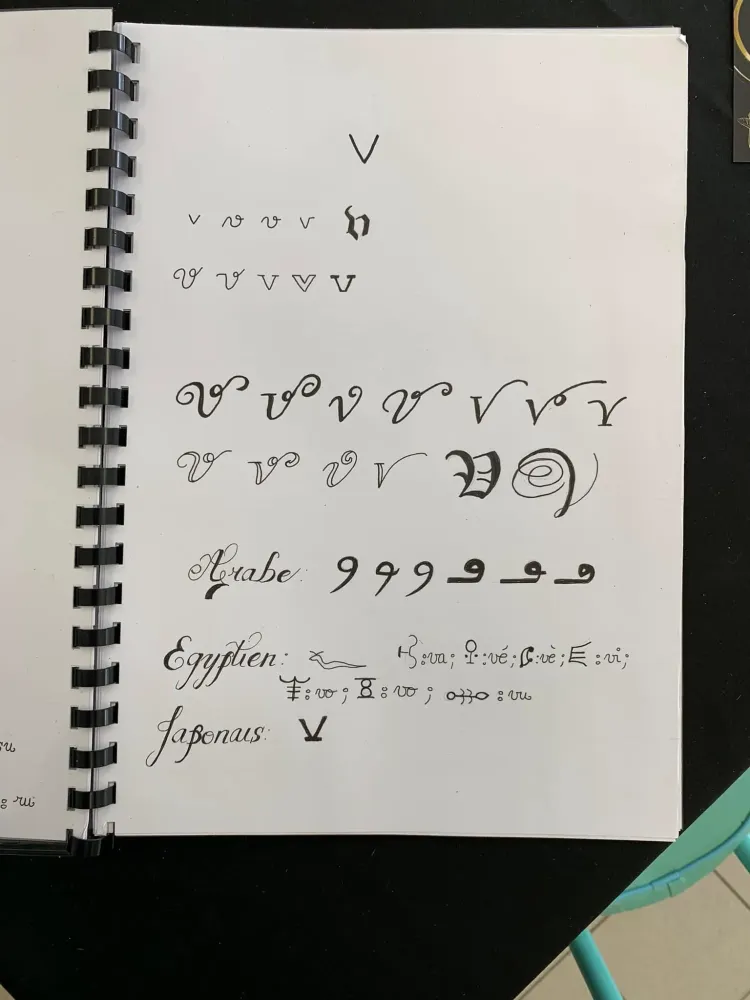 V
v v v v v
v v v v v
V V V V V V V
V V V V V V
Arabe: و و و و و و
Egyptien: :va; :vé; :vè; :vi;
:vo; :vo; :vu
Japonais: V
su
: ru